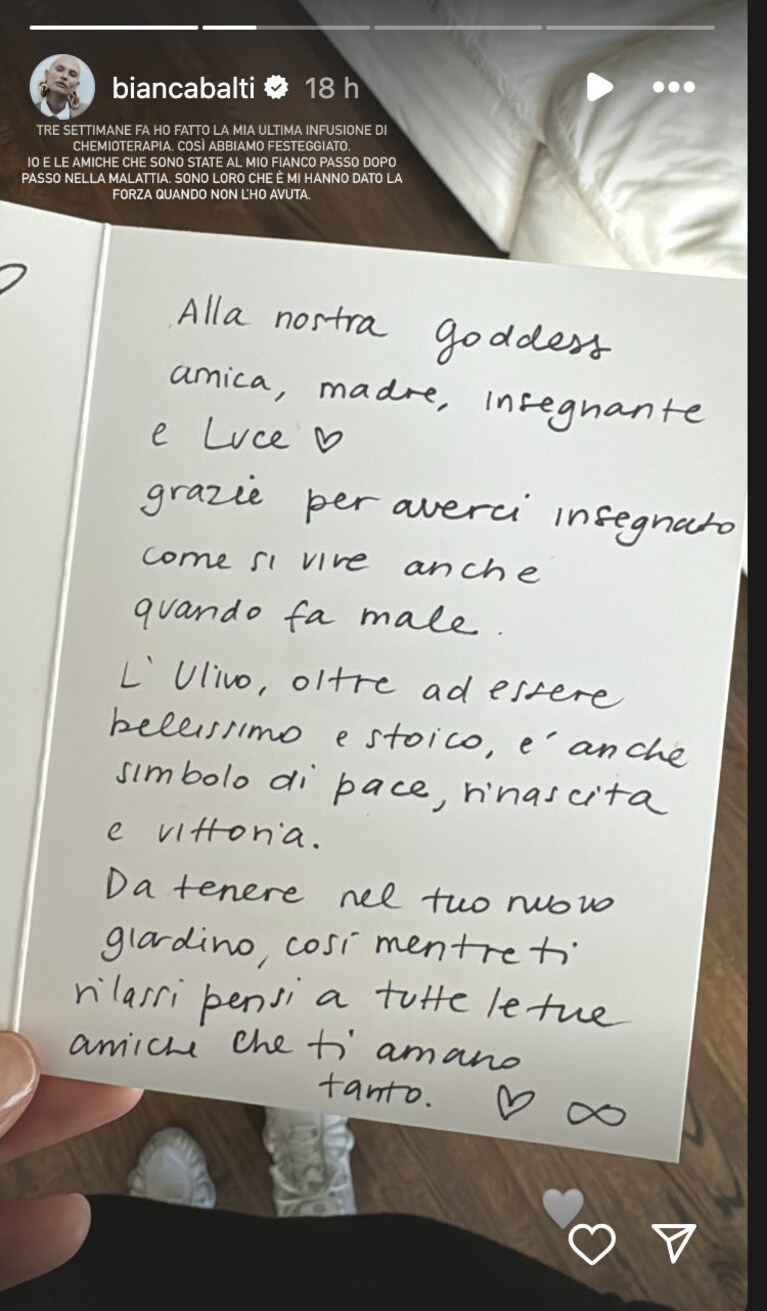 biancabalti 18 h
TRE SETTIMANE FA HO FATTO LA MIA ULTIMA INFUSIONE DI
CHEMIOTERAPIA. COSÌ ABBIAMO FESTEGGIATO.
IO E LE AMICHE CHE SONO STATE AL MIO FIANCO PASSO DOPO
PASSO NELLA MALATTIA. SONO LORO CHE È MI HANNO DATO LA
FORZA QUANDO NON L'HO AVUTA.
Alla nostra goddess
amica, madre, insegnante
e Luce ♡
grazie per averci insegnato
come si vive anche
quando fa male.
L'Ulivo, oltre ad essere
bellissimo e stoico, e' anche
simbolo di pace, rinascita
e vittoria.
Da tenere nel tuo nuovo
giardino, così mentre ti
rilassi pensi a tutte le tue
amiche che ti amano
tanto. ♡ ∞